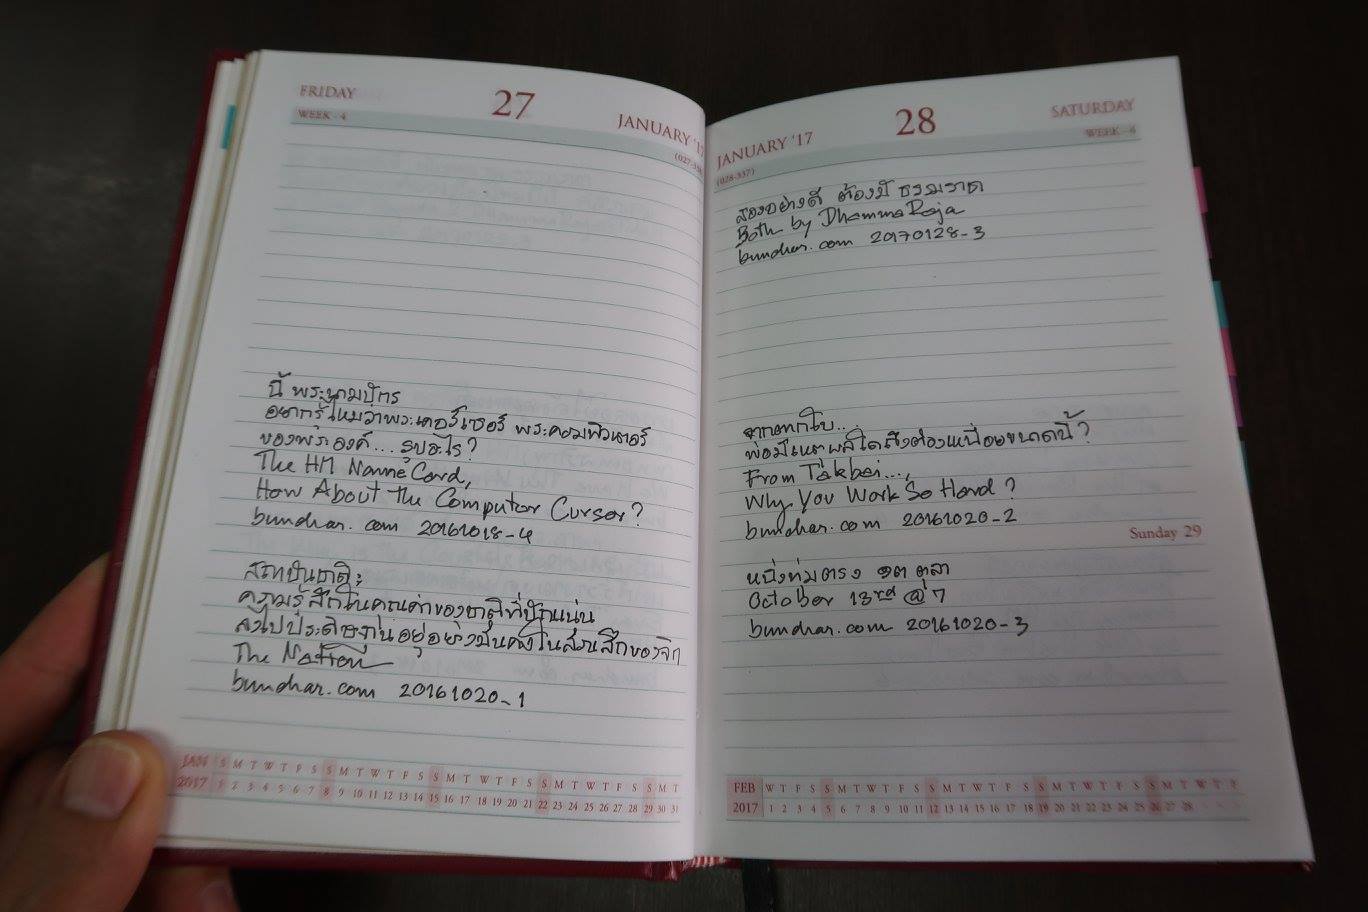 FRIDAY
27
JANUARY '17
WEEK - 4
(027-338)
นี้ พระนามบัตร
อยากรู้ไหมว่าพระเคอร์เซอร์ พระคอมพิวเตอร์
ของพระองค์... รูปอะไร?
The HM Name Card,
How About the Computer Cursor?
bundhar.com 20161018-4
สถาบันชาติ;
ความรู้สึกในคุณค่าของชาติที่ปึกแน่น
ลงไปประดิษฐานอยู่อย่างมั่นคงในส่วนลึกของจิต
The Nation
bundhar.com 20161020-1
JAN S M T W T F S S M T W T F S S M T W T F S S M T W T F S S M T
2017 1 2 3 4 5 6 7 8 9 10 11 12 13 14 15 16 17 18 19 20 21 22 23 24 25 26 27 28 29 30 31
JANUARY '17
28
SATURDAY
(028-337)
WEEK - 4
สองอย่างดี ต้องมี ธรรมราชา
Both by DhammaRaja
bundhar.com 20170128-3
จากตากใบ..
พ่อมีเหตุผลใดถึงต้องเหนื่อยขนาดนี้?
From Takbai...,
Why You Work So Hard?
bundhar.com 20161020-2
Sunday 29
หนึ่งทุ่มตรง ๑๓ ตุลา
October 13rd @ 7
bundhar.com 20161020-3
FEB W T F S S M T W T F S S M T W T F S S M T W T F S S M T W T F
2017 1 2 3 4 5 6 7 8 9 10 11 12 13 14 15 16 17 18 19 20 21 22 23 24 25 26 27 28